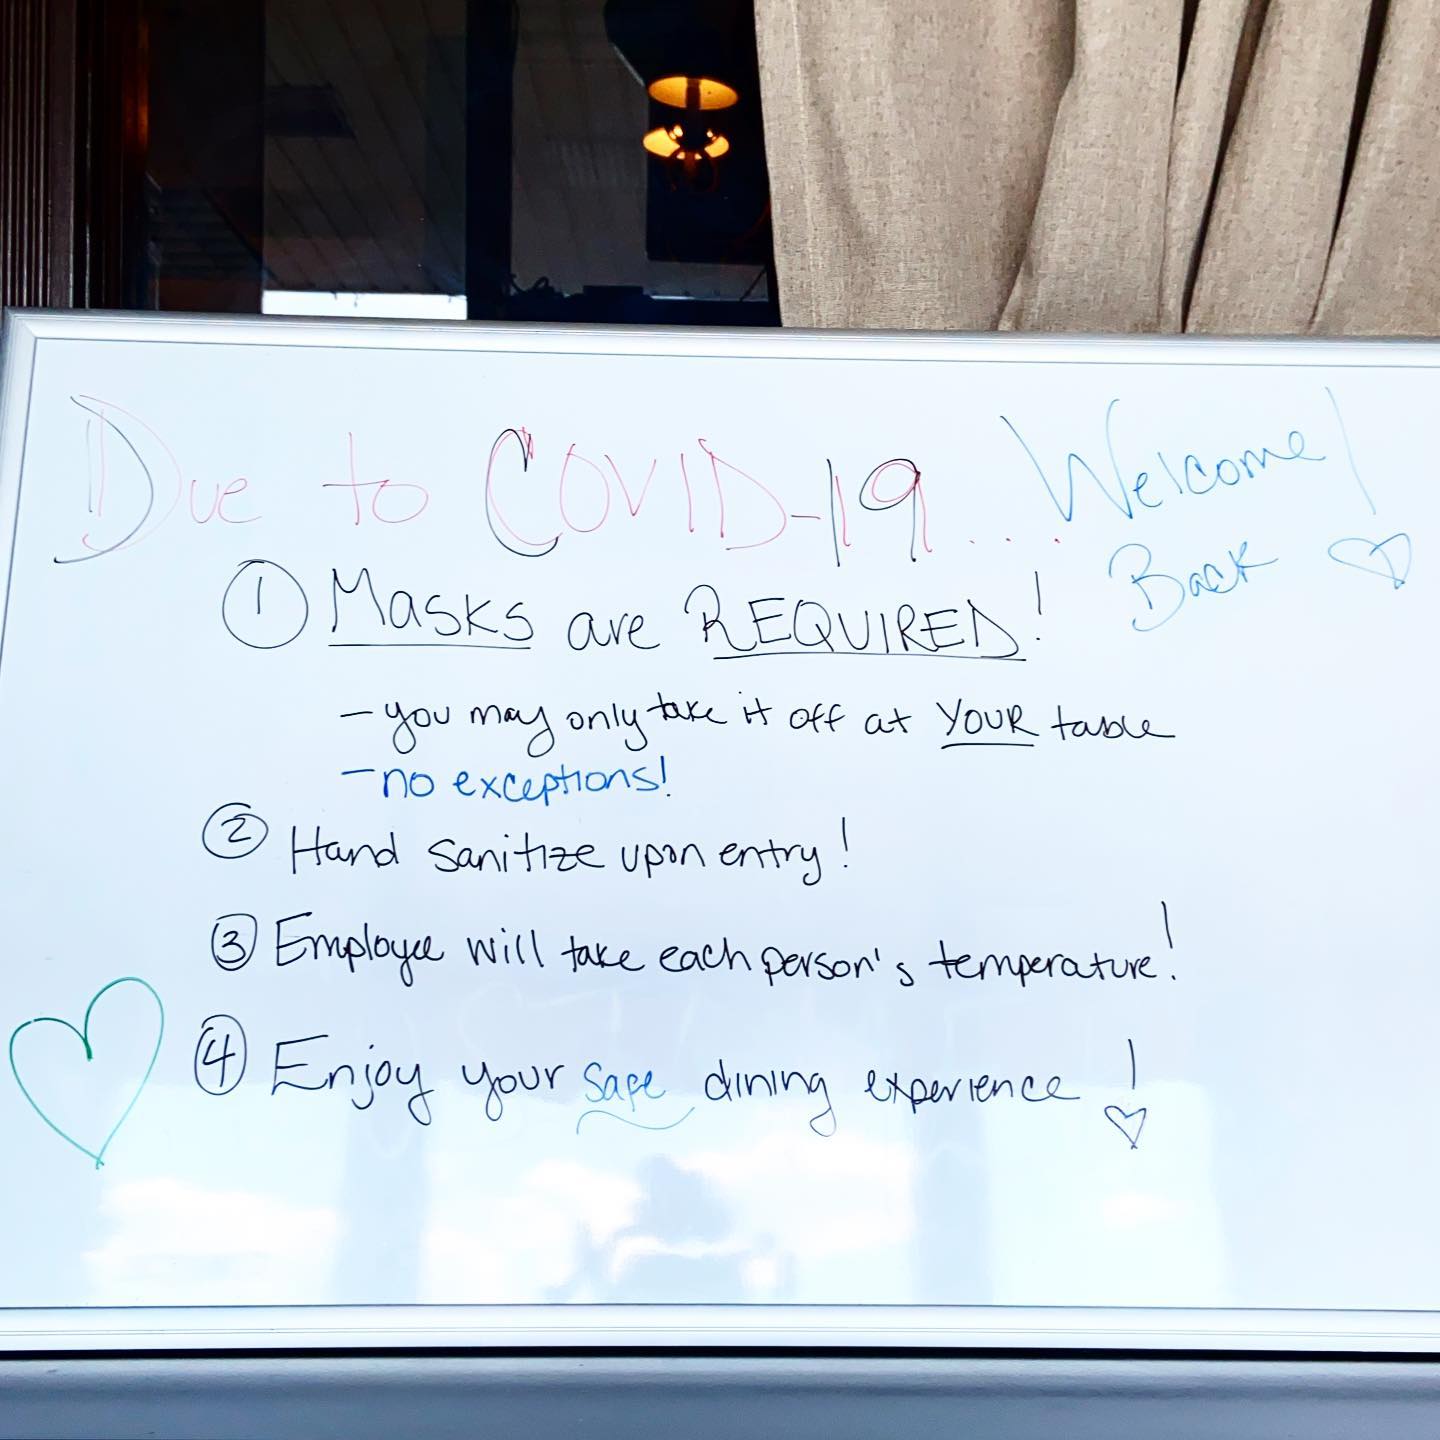 Due to COVID-19....
Welcome!
Back
① Masks are REQUIRED!
- you may only take it off at YOUR table
- no exceptions!
② Hand sanitize upon entry!
③ Employee will take each person's temperature!
④ Enjoy your safe dining experience!